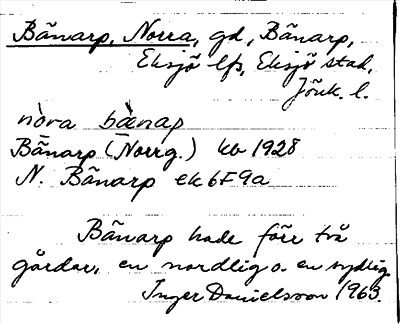 Bãnarp, Norra, gd, Bãnarp,
Eksjö lfs, Eksjö stad,
Jönk. l.
nòra bænap
Bãnarp (Norrg.) kv 1928
N. Bãnarp ek 6F9a
Bãnarp hade förr två
gårdar, en nordlig o. en sydlig.
Inger Danielsson 1963.